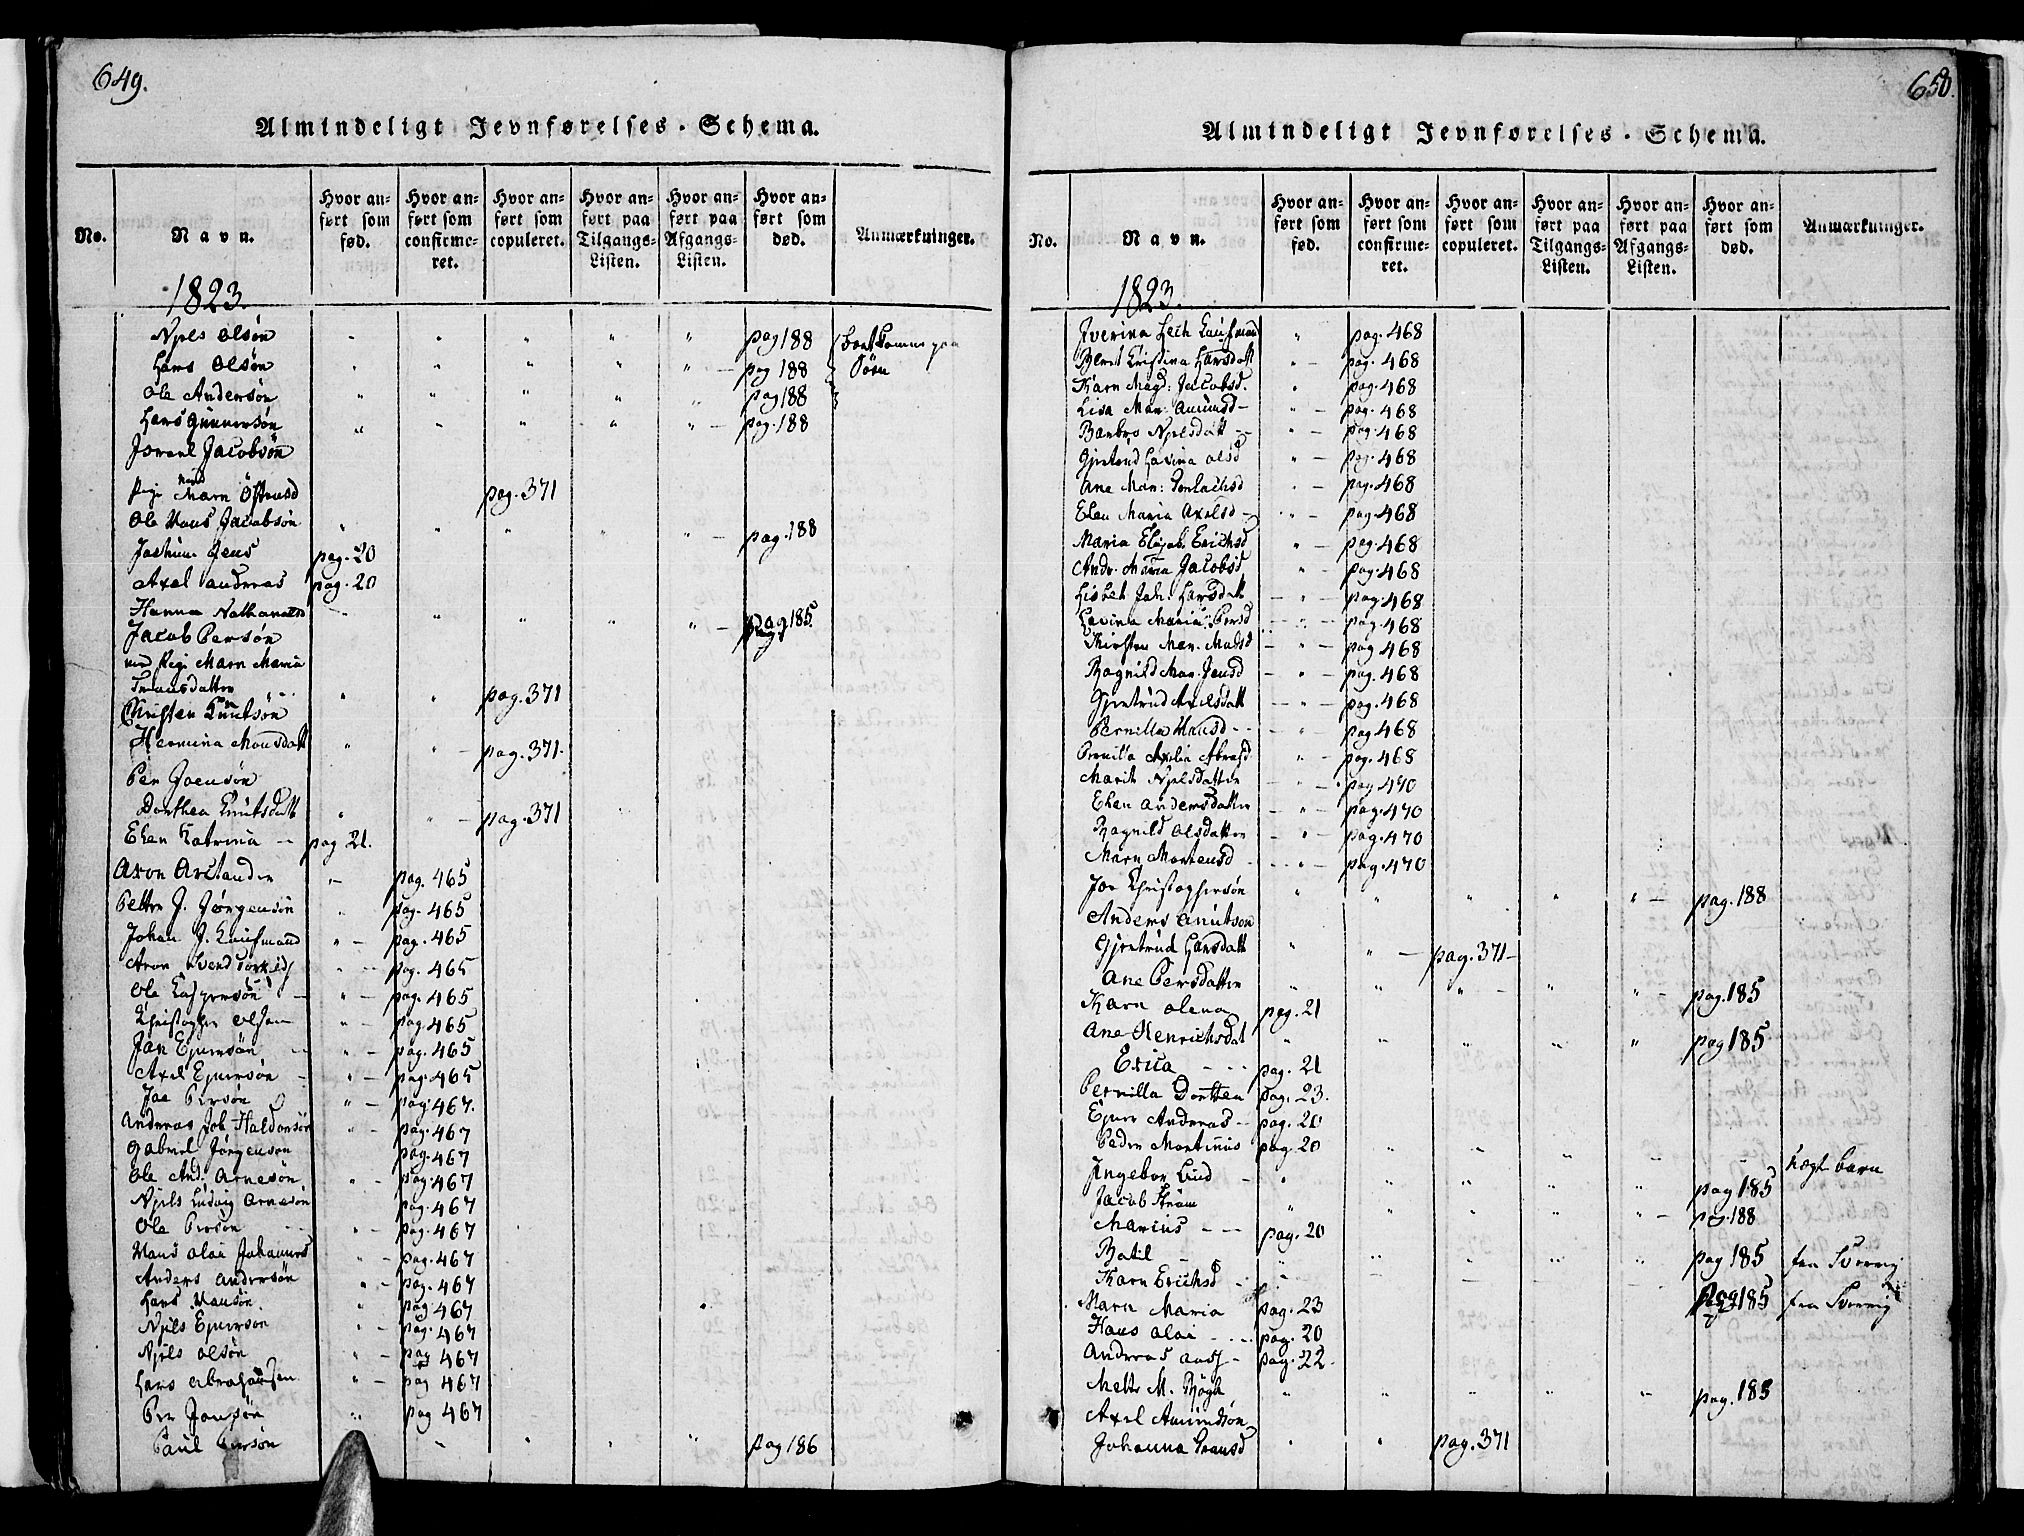 649.
Almindeligt Jevnførelses-Schema.
No. Navn. Hvor anført som fød. Hvor anført som confirmeret. Hvor anført som copuleret. Hvor anført paa Tilgangs-Listen. Hvor anført paa Afgangs-Listen. Hvor anført som død. Anmærkninger.
1823.
Njels Olsøn " " " " " pag 188
Hans Olsøn " " " " " pag 188 Søen
Ole Andersøn " " " " " pag 188
Hans Gunnersøn " " " " " pag. 188
Israel Jacobsøn
Pige Marn pag. 371
Ole Mons Jacobsøn " " " " " pag. 188
Jochum Jens pag. 20
Axel Andreas pag. 20
Hanna Nathanaelsd " " " " pag 185.
Jacob Persøn
med Pige Marn Maria
Transdatter " " pag. 371
Christen Knutsøn
Hermina Monsdatt " " pag. 371.
Per Joensøn
Dorthea Knutsdatt " " pag. 371
Elen Katrina pag 21.
Aron pag. 465
Petter J. Jørgensøn " pag. 465
Johan J. Kaufmand " pag. 465
Aron Svend pag. 465
Ole Caspersøn " pag. 465
Christopher Olsen " pag. 465
Jan Ejnersøn " pag. 465
Axel Ejnersøn " pag. 465
Joe Persøn " pag. 467.
Andreas Joh Haldorsøn " pag. 467
Gabriel Jørgensøn pag. 467
Ole And. Arnesøn " pag. 467
Njels Ludvig Arnesøn pag. 467
Ole Persøn " pag. 467
Mons Olai Johannes " pag. 467
Anders Andersøn " pag. 467
Hans Monsøn. " pag 467
Njels Ejnersøn " pag. 467
Njels Olsøn " pag 467
Hans Abrahamsen " pag 467
Per Jonsøn " pag 467
Paul Persøn " " " " pag 186
650.
Almindeligt Jevnførelses-Schema.
No. Navn. Hvor anført som fød. Hvor anført som confirmeret. Hvor anført som copuleret. Hvor anført paa Tilgangs-Listen. Hvor anført paa Afgangs-Listen. Hvor anført som død. Anmærkninger.
1823.
Iverina Kaufmand " pag. 468
Beret Kristina Hansdatt " pag. 468
Karn Magd: Jacobsd. " pag. 468
Lisa Mar: Amundsd " pag. 468
Barbro Njelsdatt " pag. 468
Gjertrud Lovina Olsd " pag. 468
Ane Mar: pag. 468
Elen Maria Axelsd " pag. 468
Maria Elisab. Erichsd " pag. 468
Andr. Maria Jacobsd " pag. 468
Lisbet Joh. Larsdatt " pag. 468
Lovina Maria Persd " pag. 468
Kirsten Mar. Matsd " pag 468
Ragnild Mar. Jensd " pag. 468
Gjertrud Axelsdatt " pag. 468
Pernilla Knudsd " pag 468
Pernilla Axelia Abrasd " pag. 468
Marit Njelsdatter " pag 470
Elen Andersdatter " pag. 470
Ragnild Olsdatter " pag. 470
Marn Mortensd " pag. 470
Joe Christophersøn " " " " " pag. 188
Anders Knutson
Gjertrud Hansdatt " " pag. 371
Ane Persdatter " " " " " pag. 185
Karn Olena pag. 21
Ane Henrichsdat " " " " " pag 185
Erica pag. 21
Pernilla Dorthea pag. 23.
Ejner Andreas pag. 20
Peder Martinus pag. 20
Ingebor Lind " " " " " pag 185 Lægt barn
Jacob Strøm " " " " " pag. 188
Marius pag. 20
Botil " " " " " pag 185 fra Sverrig
Karn Erichsd " pag 185 fra Sverrig
Marn Maria pag. 23
Hans Olai pag. 20
Andreas pag. 22.
Mette M. Bøgh " " " " " pag. 185
Axel Amundsøn
Johanna Transd " " pag. 371